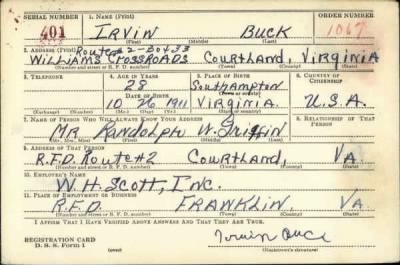 SERIAL NUMBER 1. NAME (Print) ORDER NUMBER
401 IRVIN BUCK 1067
(First) (Middle) (Last)
2. ADDRESS (Print) Route #2-Box 33
WILLIAMS CROSSROADS COURTLAND, VIRGINIA
(Number and street or R. F. D. number) (Town) (County) (State)
3. TELEPHONE 4. AGE IN YEARS 5. PLACE OF BIRTH 6. COUNTRY OF CITIZENSHIP
28 Southampton
DATE OF BIRTH (Town or county)
10 26 1911 VIRGINIA. U.S.A.
(Exchange) (Number) (Mo.) (Day) (Yr.) (State or country)
7. NAME OF PERSON WHO WILL ALWAYS KNOW YOUR ADDRESS 8. RELATIONSHIP OF THAT PERSON
MR. RANDOLPH W. Griffin
(Mr., Mrs., Miss) (First) (Middle) (Last)
9. ADDRESS OF THAT PERSON
R.F.D. ROUTE #2 COURTLAND, VA.
(Number and street or R. F. D. number) (Town) (County) (State)
10. EMPLOYER'S NAME
W. H. SCOTT, INC.
11. PLACE OF EMPLOYMENT OR BUSINESS
R.F.D. FRANKLIN, VA.
(Number and street or R. F. D. number) (Town) (County) (State)
I AFFIRM THAT I HAVE VERIFIED ABOVE ANSWERS AND THAT THEY ARE TRUE.
REGISTRATION CARD
D. S. S. Form 1 (over) (Registrant's signature)
Irvin Buck